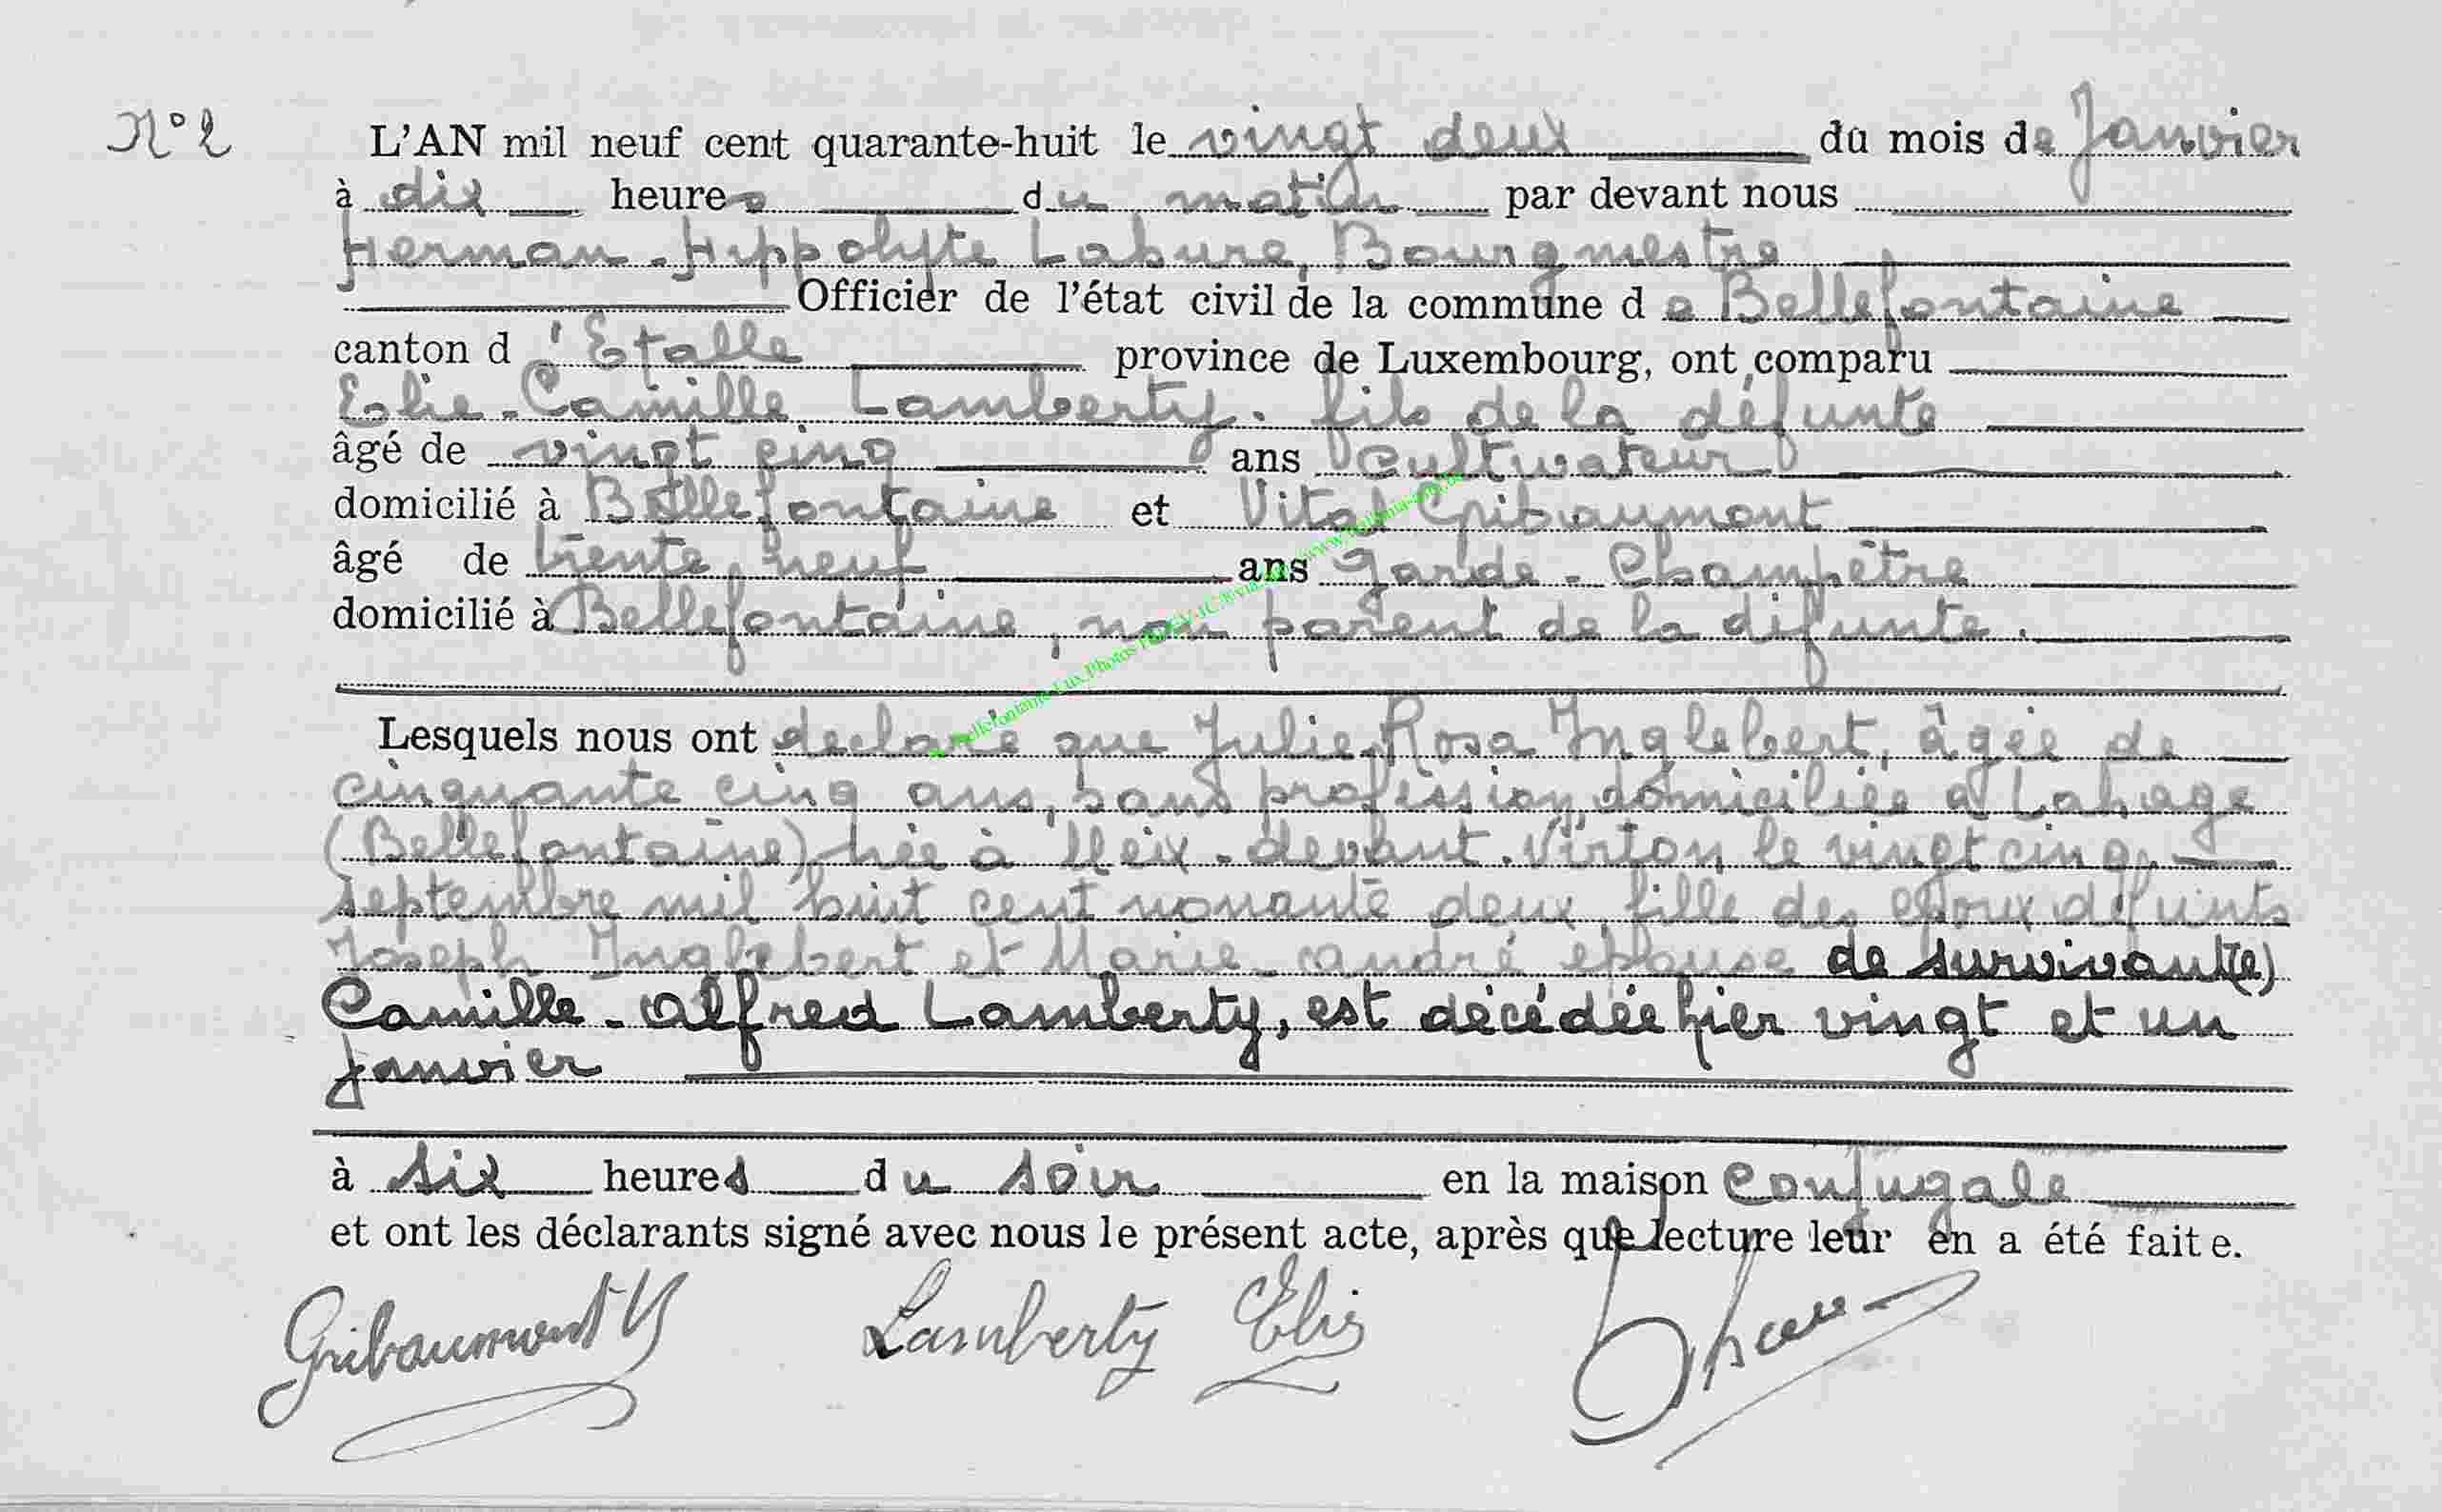 N° 2
L'AN mil neuf cent quarante-huit le vingt deux du mois de Janvier
à dix heures du matin par devant nous
Herman-Hippolyte Lahure, Bourgmestre
Officier de l'état civil de la commune de Bellefontaine
canton d'Etalle province de Luxembourg, ont comparu
Elie-Camille Lamberty. fils de la défunte
âgé de vingt cinq ans cultivateur
domicilié à Bellefontaine et Vital Gribaumont
âgé de trente neuf ans Garde-Champêtre
domicilié à Bellefontaine, non parent de la défunte.
Lesquels nous ont declaré que Julie-Rosa Inglebert, âgée de
cinquante cinq ans, sans profession, domiciliée à Lahage
(Bellefontaine) née à Meix-devant-Virton le vingt cinq
septembre mil huit cent nonante deux, fille des époux défunts
Joseph Inglebert et Marie André épouse de survivant(e)
Camille-Alfred Lamberty, est décédée hier vingt et un
janvier
à six heures du soir en la maison conjugale
et ont les déclarants signé avec nous le présent acte, après que lecture leur en a été faite.
Gribaumont V Lamberty Elie